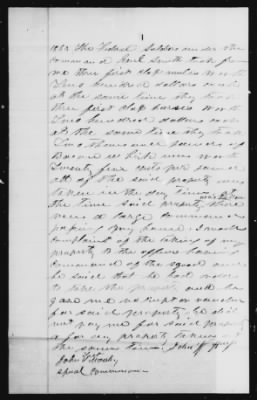 1863 The Federal Soldiers under the
command Genl Smith took from
me three first class mules worth
Two hundred dollars each
at the same time they took
three first class horses worth
Two hundred dollars each
at the same time they took
Two thousand pounds of
Bacon which was worth
Twenty five cents per pound
all of the said property was
taken in the day time
the time said property there
was a large command
passing my house. I made
complaint of the taking of my
property to the officer having
command of the squad and
he said that he had orders
to take the property and he
gave me no receipt or voucher
for said property, he did
not pay me for said property
for my property taken at
the same time John
John
Special Commissioner